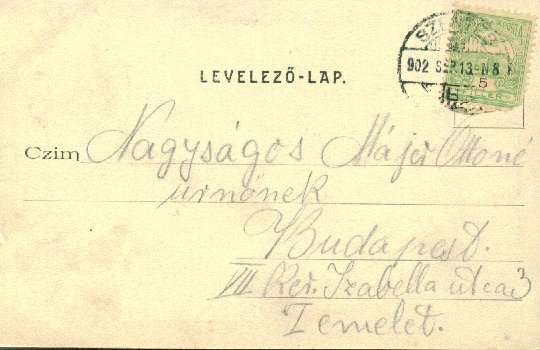 LEVELEZŐ-LAP.
902 SEP. 13. N 8
5
Czim Nagyságos Májer Ottoné
úrnőnek
Budapest.
VII Ker. Izabella utca 3
I emelet.